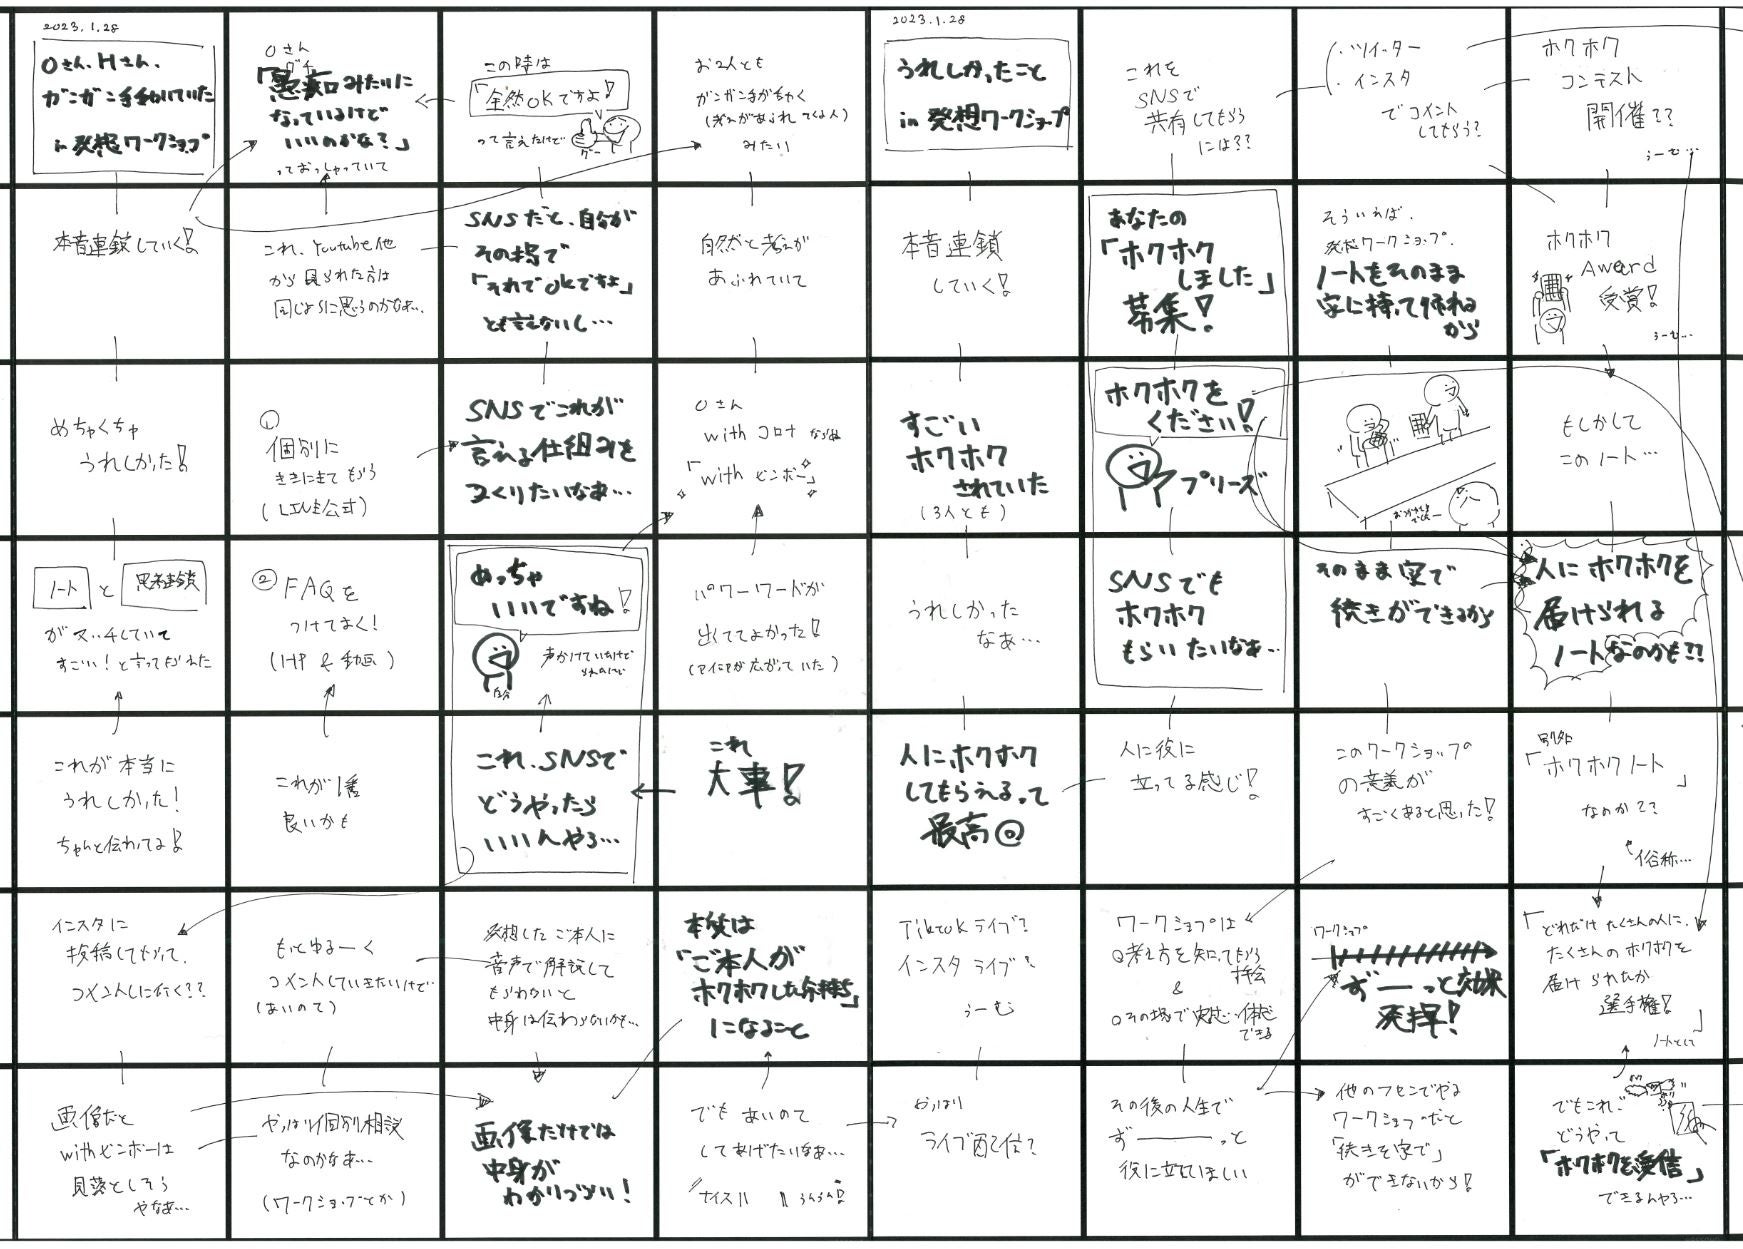 2023.1.28
Oさん、Hさん、
ガンガン手動いていた
in 発想ワークショップ
本音連鎖していく!
めちゃくちゃ
うれしかった!
ノート と 思考連鎖
がマッチしていて
すごい!と言ってもらえた
これが本当に
うれしかった!
ちゃんと伝わってる!
インスタに
投稿してもらって、
コメントしに行く??
画像だと
withビンボーは
見落としそう
やなぁ…
Oさん
グチ
「愚痴みたいに
なっているけど
いいのかな?」
っておっしゃっていて
これ、Youtube他
から見られた方は
同じように思うのかなぁ…
①
個別に
ききにきてもらう
(LINE公式)
② FAQを
つけておく!
(HP & 動画)
これが1番
良いかも
もっとゆるーく
コメントしていきたいけど…
(あいので)
やっぱり個別相談
なのかなぁ…
(ワークショップとか)
この時は
「全然OKですよ!」
って言えたけど
グー
SNSだと、自分が
その場で
「それでOKですよ」
とも言えないし…
SNSでこれが
言える仕組みを
つくりたいなぁ…
めっちゃ
いいですね!
自分
声かけていたけど
これ、SNSで
どうやったら
いいんやろ…
発想したご本人に
音声で解説して
もらわないと
中身は伝わらないかも…
画像だけでは
中身が
わかりづらい!
お2人とも
ガンガン手がうごく
(考えがあふれてくる人)
みたい
自然と考えが
あふれていて
Oさん
withコロナ ならぬ
「withビンボー」
パワーワードが
出ててよかった!
(アイデアが広がっていた)
これ
大事!
本質は
「ご本人が
ホクホクした気持ち」
になること
でも あいのて
してあげたいなぁ…
ナイス!! うんうん!
2023.1.28
うれしかったこと
in 発想ワークショップ
本音連鎖
していく!
すごい
ホクホク
されていた
(3人とも)
うれしかった
なぁ…
人にホクホク
してもらえるって
最高@
Tiktokライブ?
インスタライブ?
うーむ
やっぱり
ライブ配信?
これを
SNSで
共有してもらう
には??
あなたの
「ホクホク
しました」
募集!
ホクホクを
ください!
プリーズ
SNSでも
ホクホク
もらいたいなぁ…
人に役に
立ってる感じ!
ワークショップは
○考え方を知ってもらう
機会
&
○その場で実感・体感
できる
その後の人生で
ず――っと
役に立ってほしい
・ツイッター
・インスタ
でコメント
してもらう?
そういえば、
発想ワークショップ、
ノートをそのまま
家に持って帰れる
から
そのまま家で
続きができるから
このワークショップの
の意義が
すごくあると思った!
ワークショップ
ず――っと効果
発揮!
他のフセンでやる
ワークショップだと
「続きを家で」
ができないから!
ホクホク
コンテスト
開催??
うーむ…
ホクホク
Award
受賞!
うーむ…
もしかして
このノート…
人にホクホクを
届けられる
ノートなのかも??
別名
「ホクホクノート」
なのか??
俗称…
「どれだけたくさんの人に、
たくさんのホクホクを
届けられたか
選手権!」
ノートとして
でもこれ、
どうやって
「ホクホクを受信」
できるんやろ…